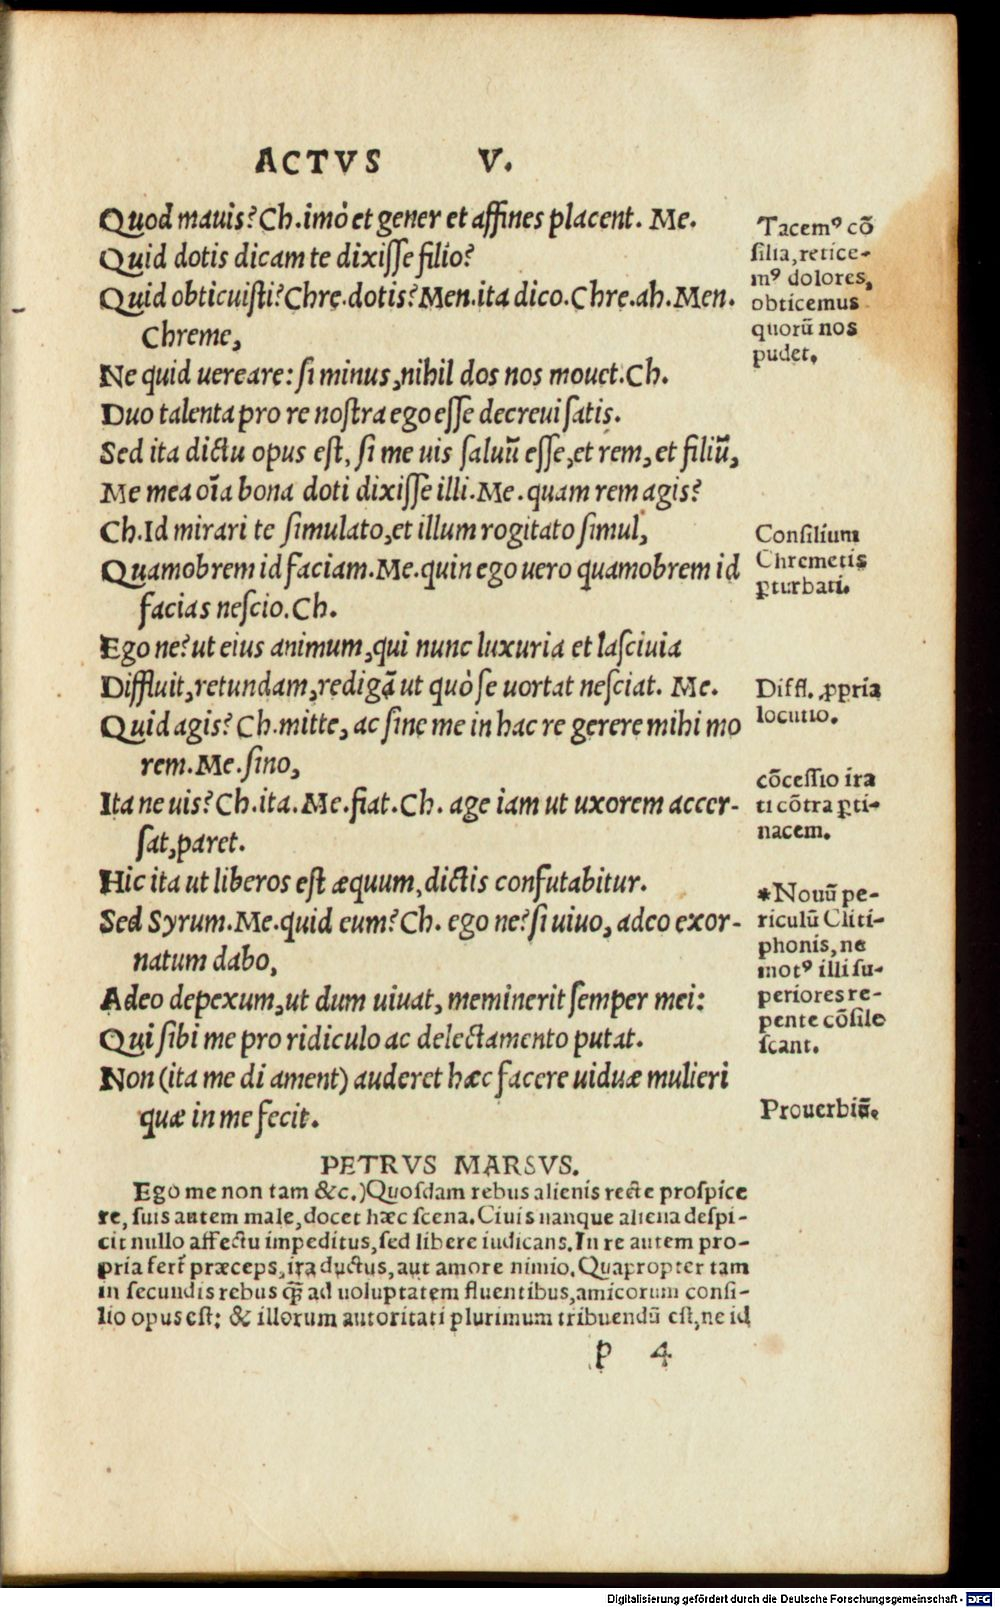 ACTVS V.
Quod mauis? Ch. imò et gener et affines placent. Me.
Quid dotis dicam te dixisse filio?
Quid obticuisti? Chre. dotis? Men. ita dico. Chre. ah. Men.
Chreme,
Ne quid uereare: si minus, nihil dos nos mouet. Ch.
Duo talenta pro re nostra ego esse decreui satis.
Sed ita dictu opus est, si me uis saluũ esse, et rem, et filiũ,
Me mea oĩa bona doti dixisse illi. Me. quam rem agis?
Ch. Id mirari te simulato, et illum rogitato simul,
Quamobrem id faciam. Me. quin ego uero quamobrem id
facias nescio. Ch.
Ego ne? ut eius animum, qui nunc luxuria et lasciuia
Diffluit, retundam, redigã ut quò se uortat nesciat. Me.
Quid agis? Ch. mitte, ac sine me in hac re gerere mihi mo
rem. Me. sino,
Ita ne uis? Ch. ita. Me. fiat. Ch. age iam ut uxorem accer-
sat, paret.
Hic ita ut liberos est æquum, dictis confutabitur.
Sed Syrum. Me. quid eum? Ch. ego ne? si uiuo, adeo exor-
natum dabo,
Adeo depexum, ut dum uiuat, meminerit semper mei:
Qui sibi me pro ridiculo ac delectamento putat.
Non (ita me di ament) auderet hæc facere uiduæ mulieri
quæ in me fecit.
Tacemꝰ cõ
silia, retice-
mꝰ dolores,
obticemus
quorũ nos
pudet.
Consilium
Chremetis
ꝑturbati.
Diffl. ꝓpria
locutio.
cõcessio ira
ti cõtra ꝑti-
nacem.
*Nouũ pe-
riculũ Cliti-
phonis, ne
motꝰ illi su-
periores re-
pente cõsile
scant.
Prouerbiũ.
PETRVS MARSVS.
Ego me non tam &c.) Quosdam rebus alienis recte prospice
re, suis autem male, docet hæc scena. Ciuis nanque aliena despi-
cit nullo affectu impeditus, sed libere iudicans. In re autem pro-
pria fert̃ præceps, ira ductus, aut amore nimio. Quapropter tam
in secundis rebus q̃ ad uoluptatem fluentibus, amicorum consi-
lio opus est: & illorum autoritati plurimum tribuendũ est, ne id
p 4
Digitalisierung gefördert durch die Deutsche Forschungsgemeinschaft - DFG